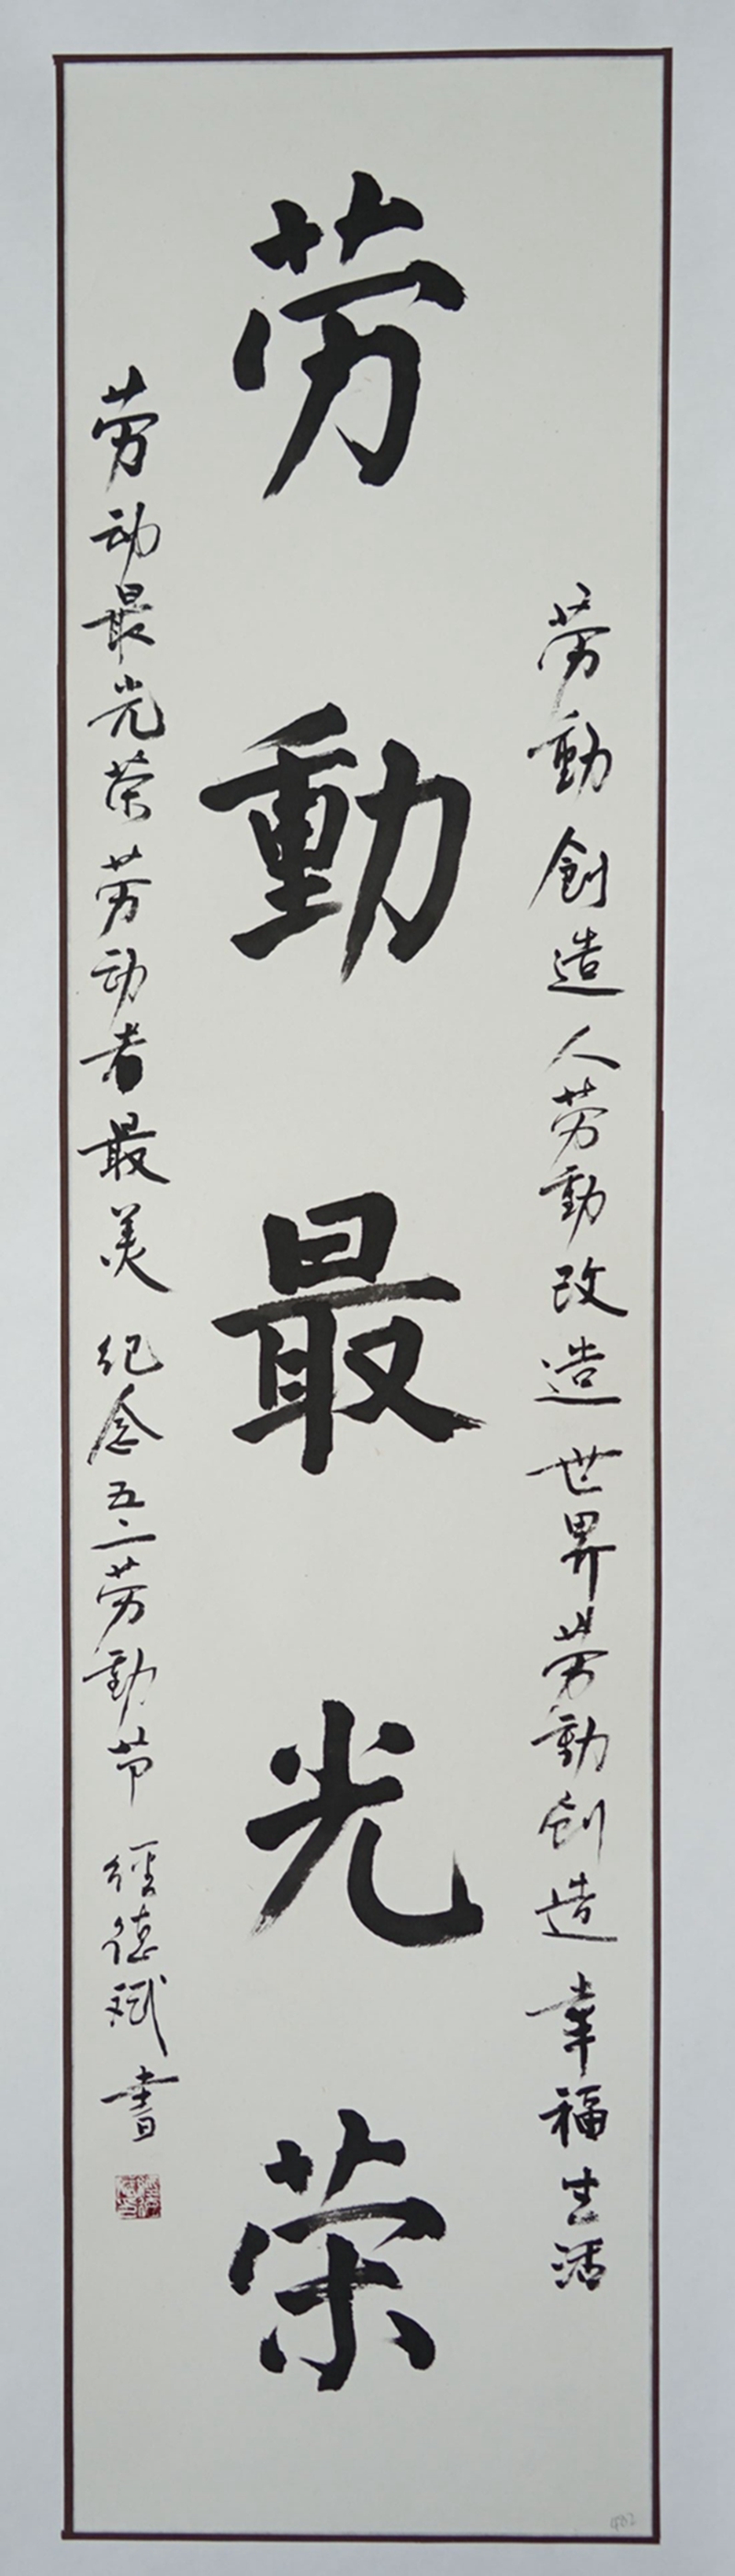 劳動創造人劳動改造世界劳動創造幸福生活
劳動最光荣
劳动最光荣劳动者最美 纪念五一劳動节 經德斌書